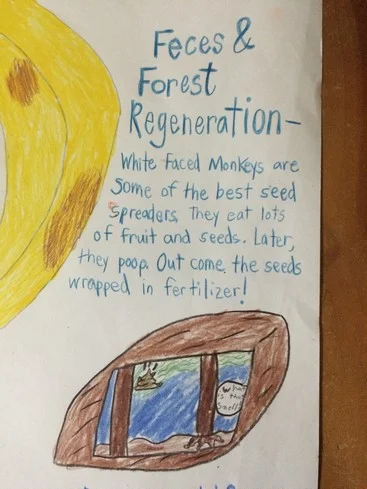 Feces &
Forest
Regeneration-
White faced Monkeys are
some of the best seed
spreaders. They eat lots
of fruit and seeds. Later,
they poop. Out come, the seeds
wrapped in fertilizer!
What
is that
smell?